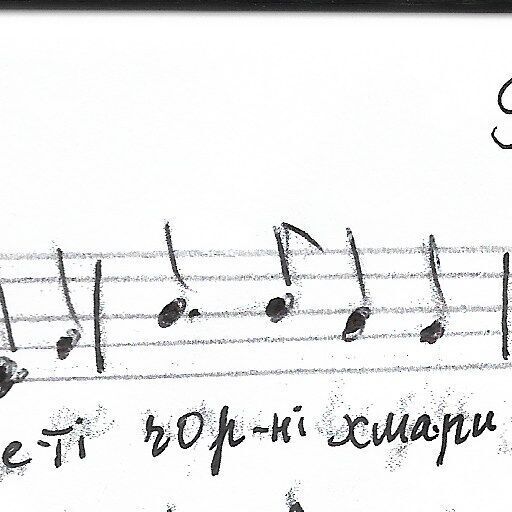 е-ті чор-ні хмари